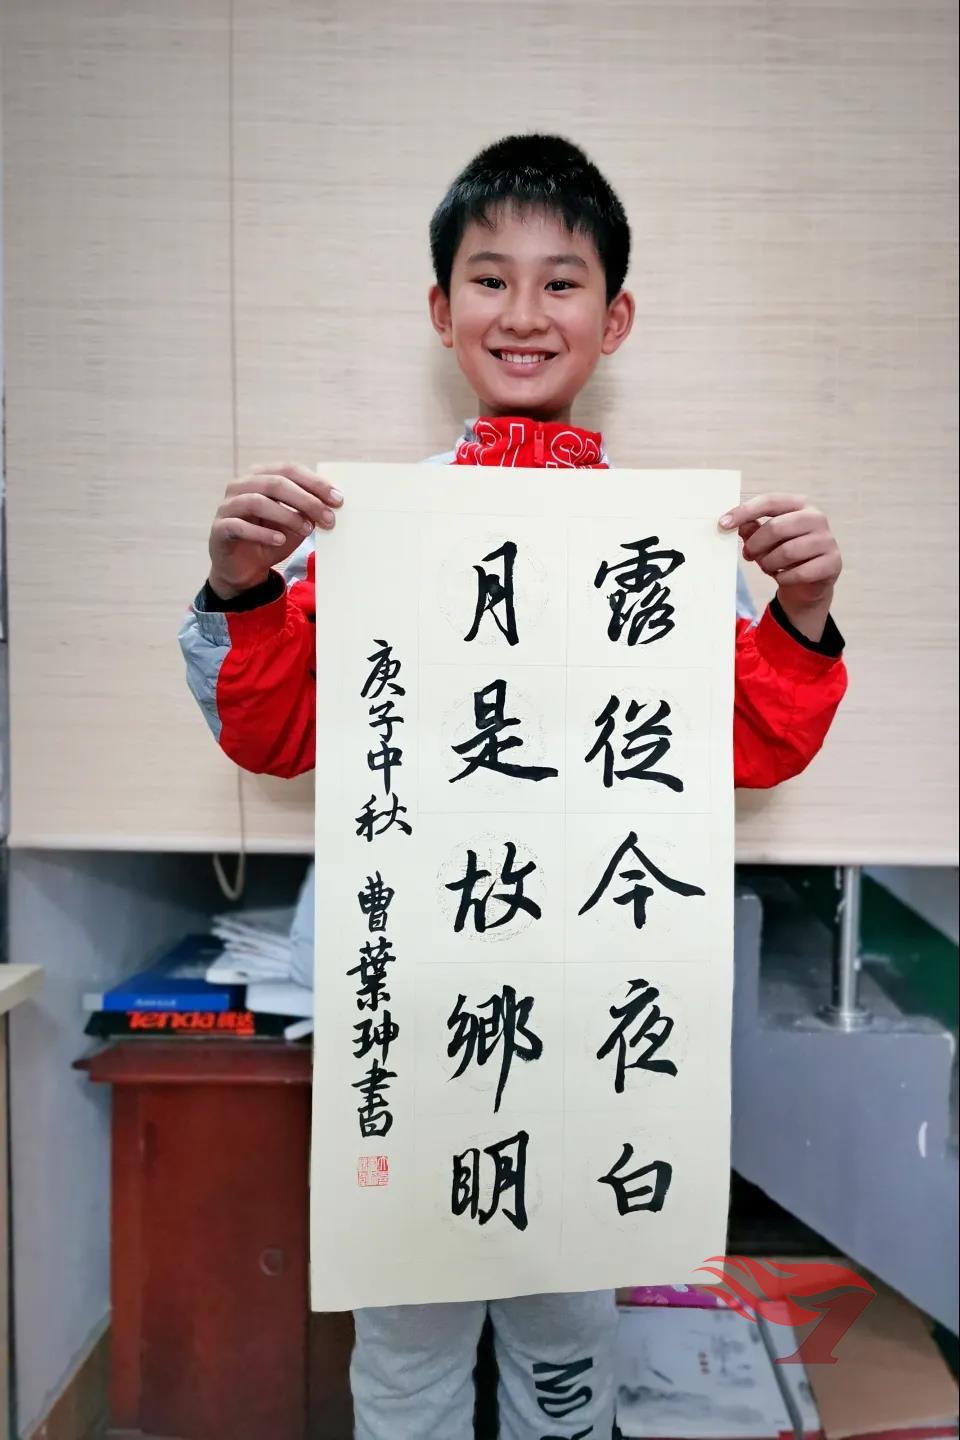 露從今夜白
月是故鄉明
庚子中秋 曹葉珅書
Tenda腾达